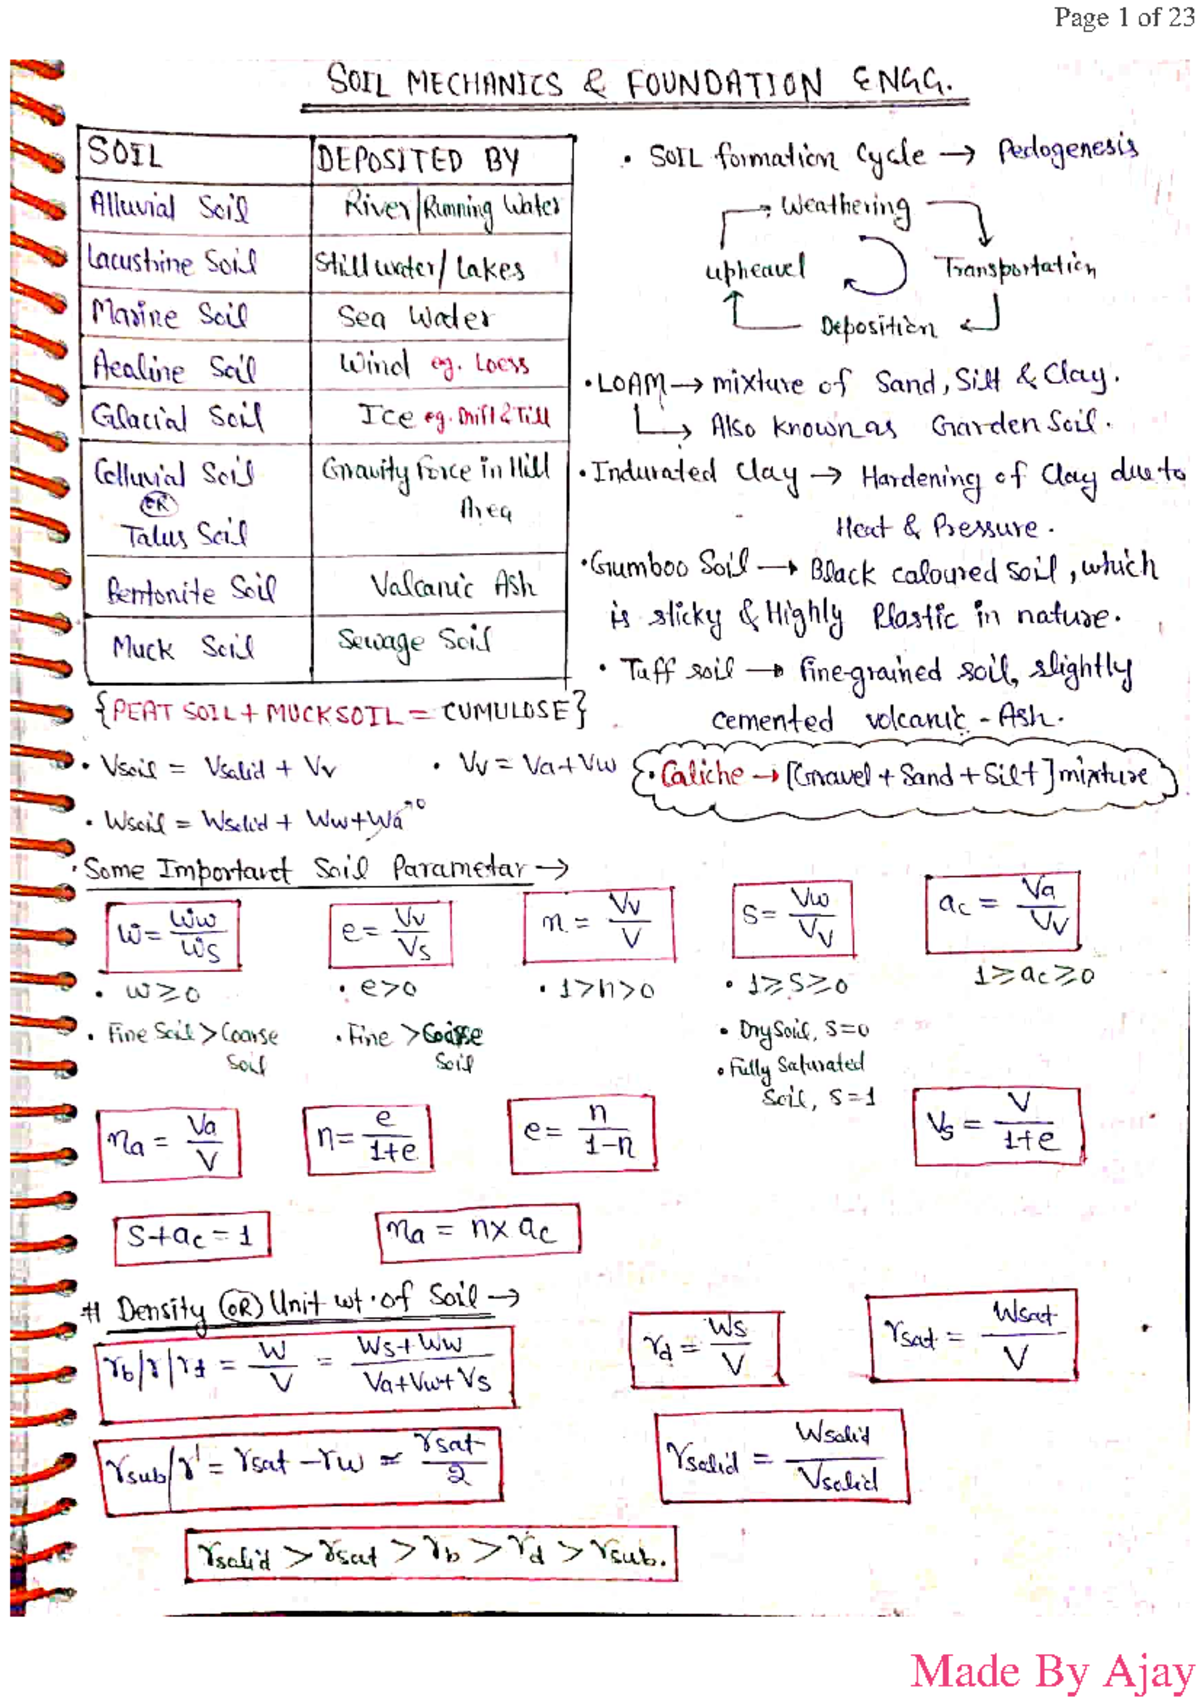 Page 1 of 23
SOIL MECHANICS & FOUNDATION ENGG.
SOIL DEPOSITED BY
Alluvial Soil River/Running Water
Lacustrine Soil Still water/Lakes
Marine Soil Sea Water
Aealine Soil Wind eg. Loess
Glacial Soil Ice eg. Drift & Till
Colluvial Soil Gravity Force in Hill
OR Area
Talus Soil
Bentonite Soil Valcanic Ash
Muck Soil Sewage Soil
{PEAT SOIL + MUCK SOIL = CUMULOSE}
• SOIL formation Cycle → Pedogenesis
→ Weathering
upheavel Transportation
Deposition
• LOAM → mixture of Sand, Silt & Clay.
→ Also known as Garden Soil.
• Indurated Clay → Hardening of Clay due to
Heat & Pressure.
• Gumboo Soil → Black coloured soil, which
is sticky & Highly Plastic in nature.
• Tuff soil → fine-grained soil, slightly
cemented volcanic - Ash.
• Caliche → [Gravel + Sand + Silt] mixture
• Vsoil = Vsolid + Vv • Vv = Va + Vw
• Wsoil = Wsolid + Ww + Wa→0
• Some Important Soil Parametar →
w = Ww/Ws e = Vv/Vs n = Vv/V s = Vw/Vv ac = Va/Vv
• w ≥ 0 • e > 0 • 1 > n > 0 • 1 ≥ S ≥ 0 1 ≥ ac ≥ 0
• Fine Soil > Coarse Soil • Fine > Coarse Soil • Dry Soil, S=0
• Fully Saturated
Soil, S=1
na = Va/V n = e/1+e e = n/1-n Vs = V/1+e
S + ac = 1 na = n × ac
# Density OR Unit wt. of Soil →
γb/γ/γt = W/V = Ws+Ww/Va+Vw+Vs γd = Ws/V γsat = Wsat/V
γsub/γ' = γsat - γw ≃ γsat/2 γsolid = Wsolid/Vsolid
γsolid > γsat > γb > γd > γsub.
Made By Ajay